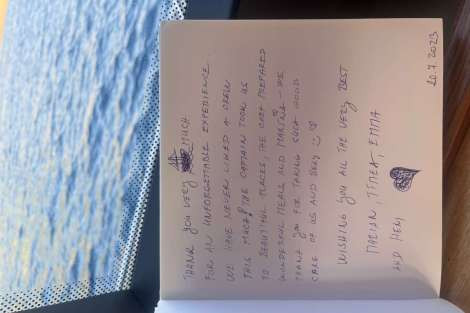 THANK YOU VERY MUCH
FOR AN UNFORGETTABLE EXPERIENCE.
WE HAVE NEVER LIKED A CREW
THIS MUCH! THE CAPTAIN TOOK US
TO BEAUTIFUL PLACES, THE CHEF PREPARED
WONDERFUL MEALS AND MARINA - WE
THANK YOU FOR TAKING SUCH GOOD
CARE OF US AND
WISHING YOU ALL THE VERY BEST
MARIAN, TIMEA, EMMA
AND
20.7.2023